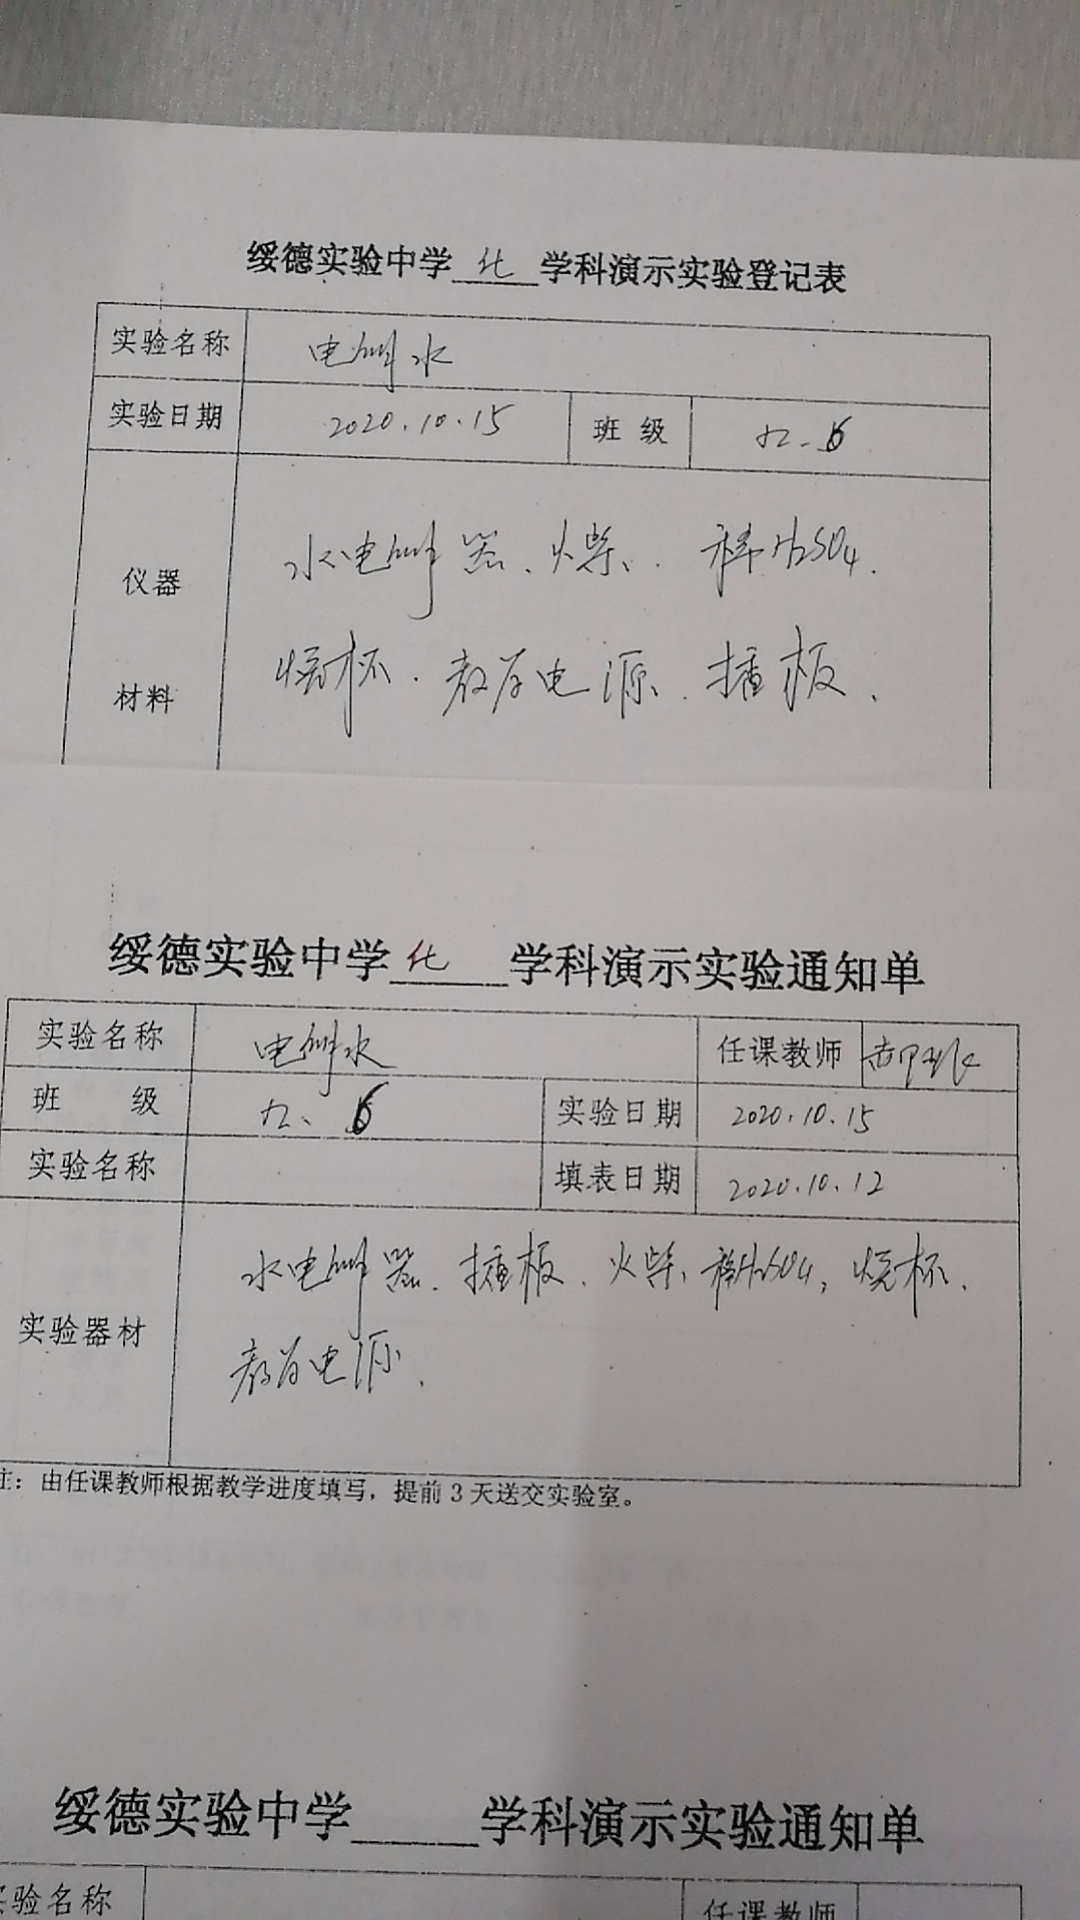 绥德实验中学 化 学科演示实验登记表
实验名称 电解水
实验日期 2020.10.15 班级 九.6
仪器 水电解器、火柴、稀H2SO4.
材料 烧杯.教学电源.插板、
绥德实验中学 化 学科演示实验通知单
实验名称 电解水 任课教师
班 级 九、6 实验日期 2020.10.15
实验名称 填表日期 2020.10.12
实验器材 水电解器.插板.火柴、稀H2SO4,烧杯.
教学电源.
注：由任课教师根据教学进度填写，提前3天送交实验室。
绥德实验中学 学科演示实验通知单
实验名称 任课教师